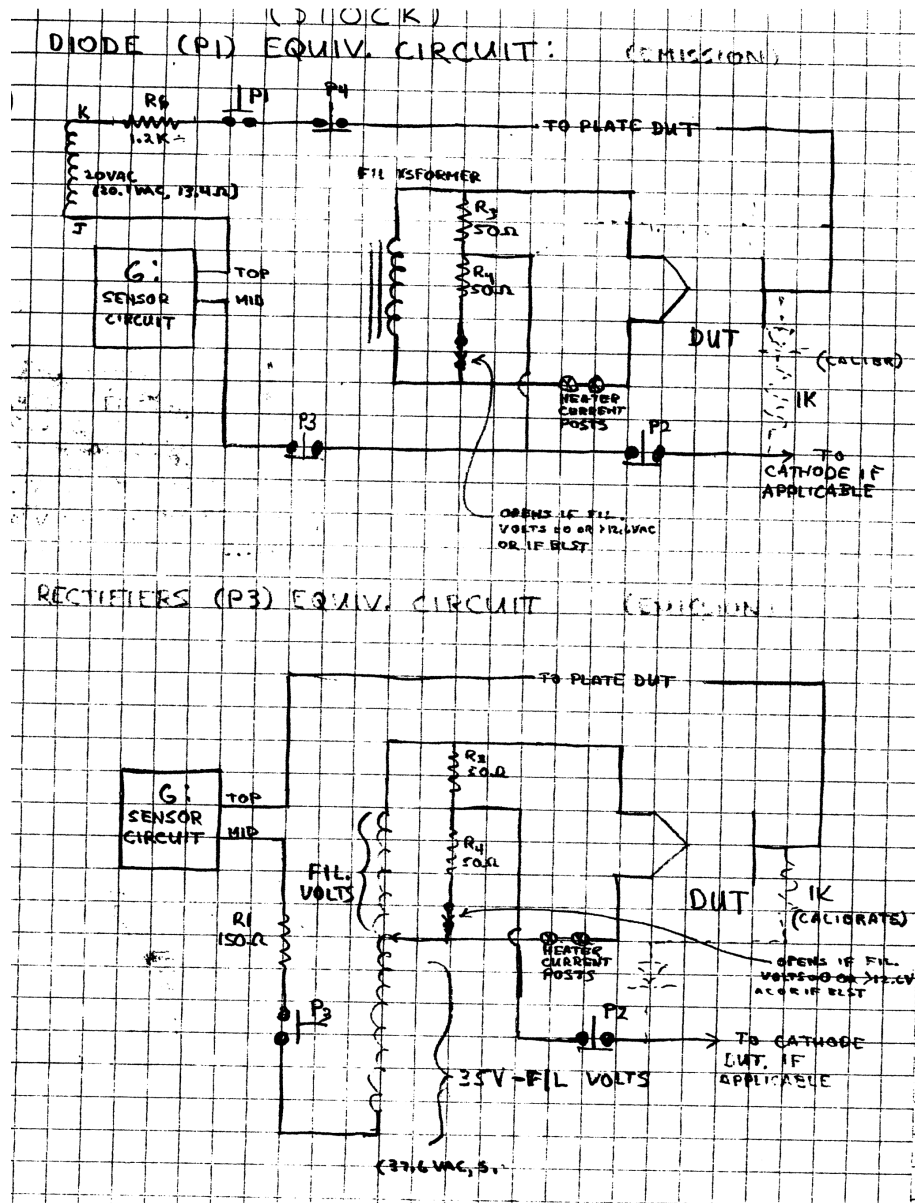 DIODE (P1) EQUIV. CIRCUIT: (EMISSION)
K
1.2K
P1
P4
TO PLATE DUT
20VAC
(20.1VAC, 13.4Ω)
J
FIL XSFORMER
R3
50Ω
R4
50Ω
G:
SENSOR
CIRCUIT
TOP
MID
DUT
(CALIBR)
1K
HEATER
CURRENT
POSTS
P3
P2
TO
CATHODE IF
APPLICABLE
OPENS IF FIL.
VOLTS =0 OR >12.6VAC
OR IF BLST
RECTIFIERS (P3) EQUIV. CIRCUIT (EMISSION)
TO PLATE DUT
50Ω
G:
SENSOR
CIRCUIT
TOP
MID
R4
50Ω
FIL.
VOLTS
DUT
1K
(CALIBRATE)
R1
150Ω
HEATER
CURRENT
POSTS
OPENS IF FIL.
VOLTS=0 OR >12.6V
AC OR IF BLST
P3
P2
TO CATHODE
DUT, IF
APPLICABLE
35V-FIL VOLTS
(37.6 VAC, 5.